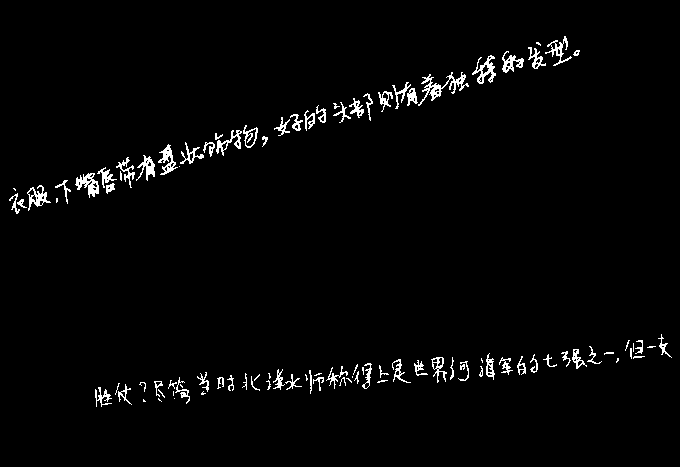 衣服,下嘴唇带有盘状饰物,好的头部则有着独特的发型。
胜仗?尽管当时北洋水师称得上是世界海军的七强之一,但一支